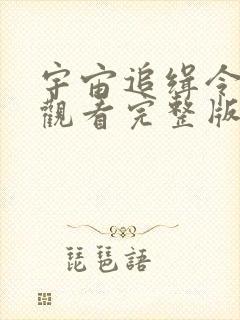 宇宙追缉令
觀看完整版
琵琶語